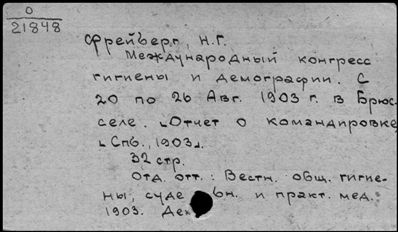 0
21848
Фрейберг, Н.Г.
Международный конгресс
гигиены и демографии. С
20 по 26 Авг. 1903 г. в Брюс-
селе. [Отчет о командировке]
[Спб., 1903].
32 стр.
Отд. отт.: Вестн. общ. гигие-
ны, суде вн. и практ. мед.
1903. Дек